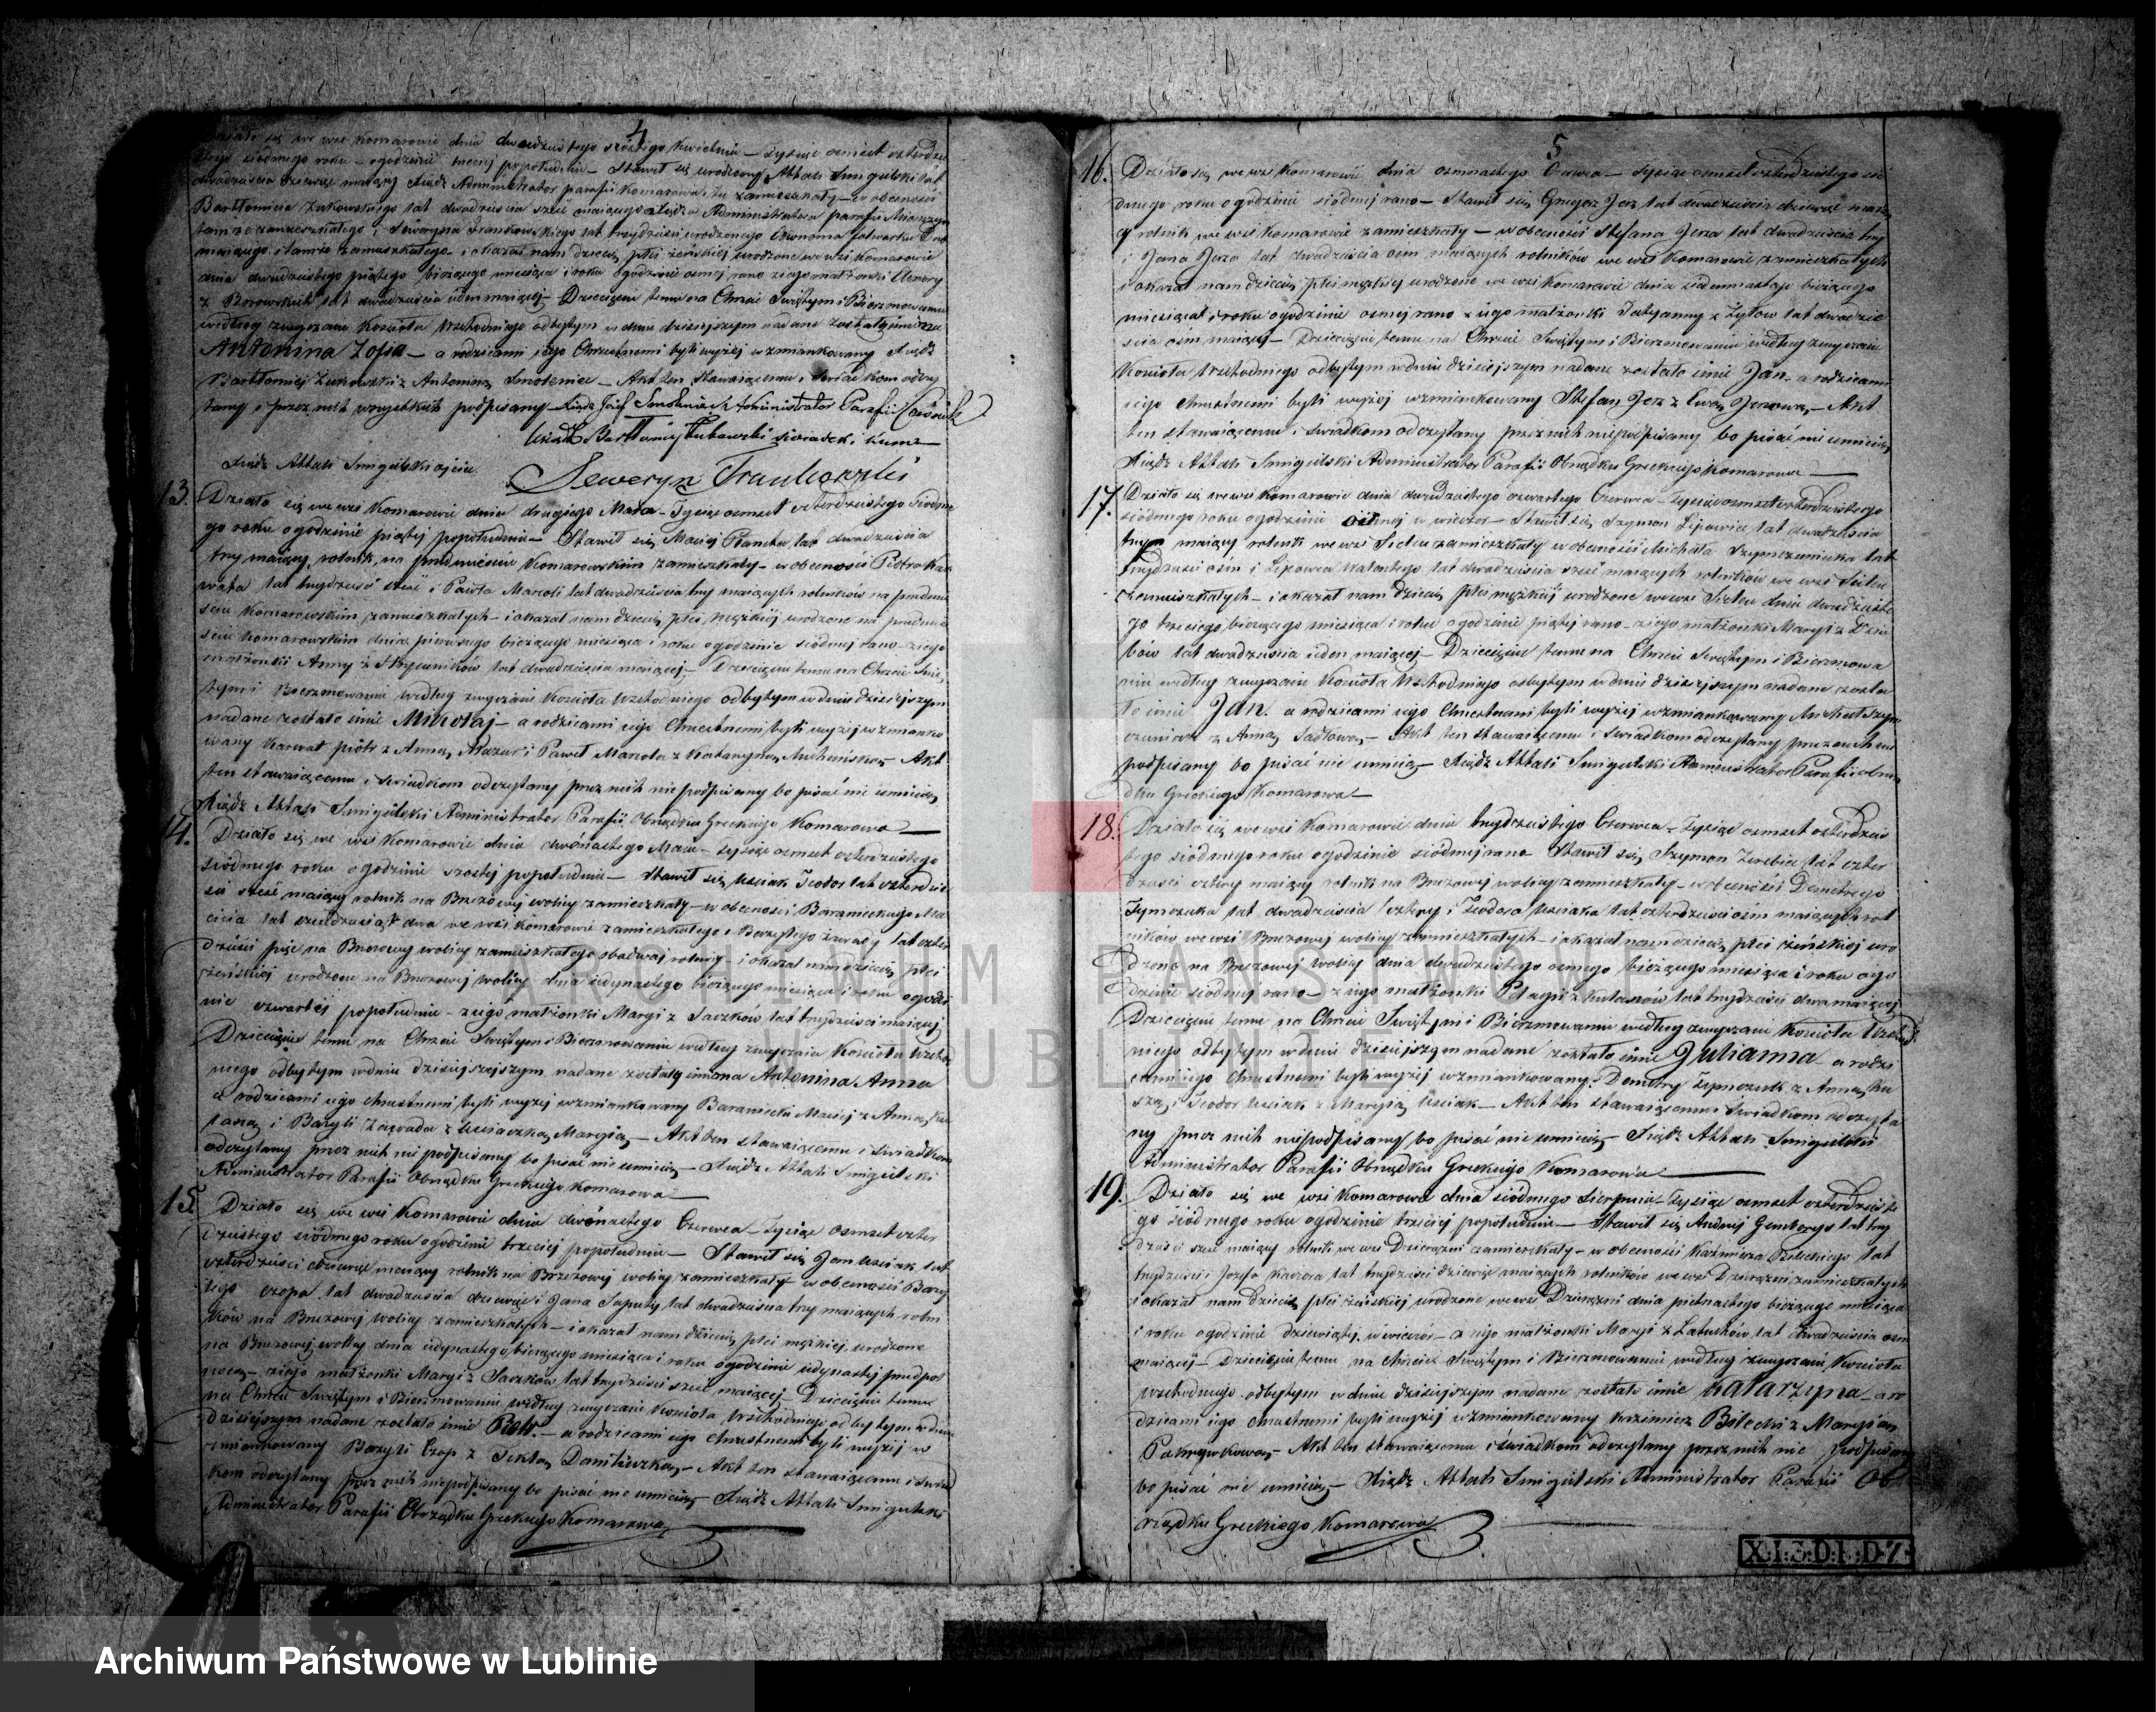 4
się we wsi Komarowie dnia dwudziestego szóstego Kwietnia – tysiąc osmset czterdzie
siódmego roku – ogodzinie trzeciej popołudniu – Stawił się urodzony Attali Smigulski lat
dwadzieścia dziewięć maiący Xiądz Administrator parafii Komarowa, tu zamieszkały – w obecności
Bartłomieia Zukowskiego lat dwadzieścia sześć maiącego Xiędza Administratora parafii
tamże zamieszkałego, i Seweryna Frankowskiego lat trzydzieści urodzonego Ekonoma folwarku
maiącego i tamże zamieszkałego – i okazał nam dziecię płci żeńskiej urodzone we wsi Komarowie
dnia dwudziestego piątego bieżącego miesiąca i roku ogodzinie osmej rano z iego małżonki
z Borowskich lat dwadzieścia ieden maiącej – Dziecięciu temu na Chrzcie Swiętym i Bierzmowaniu
według zwyczaiu Kościoła Wschodniego odbytym w dniu dzisiejszym nadane zostały imiona
Antonina Zofia – a rodzicami iego Chrzestnemi byli wyżej wzmiankowany Xiądz
Bartłomiej Zukowski z Antoniną Smoleniec – Akt ten Stawaiącemu i Swiadkom odczy
tany i przez nich wszystkich podpisany – Xiądz Józef Smoleniec Administrator Parafii
Xiądz Bartłomiej Zukowski swiadek i kum
Xiądz Attali Smigulski ojciec
Seweryn Frankowski
13. Działo się we wsi Komarowie dnia drugiego Maia – Tysiąc osmset czterdziestego siódme
go roku ogodzinie piątej popołudniu – Stawił się Maciej Panche lat dwadzieścia
trzy maiący, rolnik, na przedmieściu Komarowskim zamieszkały – w obecności Piotra Kar
wata lat trzydzieści sześć i Pawła Marcoli lat dwadzieścia trzy maiących rolników na przedmie
ściu Komarowskim zamieszkałych – i okazał nam dziecię płci męzkiej urodzone na przedmie
ściu Komarowskim dnia pierwszego bieżącego miesiąca i roku ogodzinie siódmej rano – z iego
małżonki Anny z lat dwadzieścia maiącej – Dziecięciu temu na Chrzcie Swię
tym i Bierzmowaniu według zwyczaiu Kościoła Wschodniego odbytym w dniu dzisiejszym
nadane zostało imie Mikołaj – a rodzicami iego Chrzestnemi byli wyżej wzmianko
wany Karwat piotr z Anną Mazur i Paweł Marcola z Katarzyną – Akt
ten stawaiącemu i swiadkom odczytany przez nich nie podpisany bo pisać nie umieią
Xiądz Attali Smigulski Administrator Parafii Obrządku Greckiego Komarowa
14. Działo się we wsi Komarowie dnia dwónastego Maia – tysiąc osmset czterdziestego
siódmego roku ogodzinie szóstej popołudniu – Stawił się Usciak Teodor lat czterdzie
ści sześć maiący rolnik na Brzozowy wolicy zamieszkały – w obecności Baranieckiego Ma
cieia lat dwa we wsi Komarowie zamieszkałego i Bazylego Zawady lat czter
dzieści pięć na Brzozowy wolicy zamieszkałego obadwaj rolnicy – i okazał nam dziecię płci
żeńskiej urodzone na Brzozowej wolicy dnia iedynastego bieżącego miesiąca i roku ogodzi
nie czwartej popołudniu – z iego małżonki Maryi z Saczków lat trzydzieści maiącej
Dziecięciu temu na Chrzcie Swiętym i Bierzmowaniu według zwyczaiu Kościoła Wscho
niego odbytym w dniu dzisiejszym nadane zostały imiona Antonina Anna
a rodzicami iego chrzestnemi byli wyżej wzmiankowany Baraniecki Maciej z Anną
i Bazyli Zawada z Usciaczką Maryią – Akt ten stawaiącemu i swiadkom
odczytany przez nich nie podpisany bo pisać nie umieią – Xiądz Attali Smigulski
Administrator Parafii Obrządku Greckiego Komarowa
15. Działo się we wsi Komarowie dnia dwónastego Czerwca – Tysiąc osmset czter
dziestego siódmego roku ogodzinie trzeciej popołudniu – Stawił się Jan Usciak lat
czterdzieści dziewięć maiący rolnik na Brzozowej wolicy zamieszkały – w obecności Bazy
lego Czopa lat dwadzieścia dziewięć i Jana Saputy lat dwadzieścia trzy maiących rolni
ków na Brzozowej wolicy zamieszkałych – i okazał nam dziecię płci męzkiej, urodzone
na Brzozowej wolicy dnia iedynastego bieżącego miesiąca i roku ogodzinie iedynastej przedpoł
z iego małżonki Maryi z Saczków lat trzydzieści sześć maiącej Dziecięciu temu
na Chrzcie Swiętym i Bierzmowaniu według zwyczaiu Kościoła Wschodniego odbytym w dniu
dzisiejszym nadane zostało imie Piotr. – a rodzicami iego chrzestnemi byli wyżej w
zmiankowany Bazyli Czop z Teklą Daniluczką – Akt ten stawaiącemu i swiad
kom odczytany przez nich niepodpisany bo pisać nie umieią – Xiądz Attali Smigulski
Administrator Parafii Obrządku Greckiego Komarowa
5
16. Działo się we wsi Komarowie dnia osmnastego Czerwca – tysiąc osmset czterdziestego sió
dmego roku ogodzinie siódmej rano – Stawił się Grzegorz Jerz lat dwadzieścia dziewięć maią
cy rolnik we wsi Komarowie zamieszkały – w obecności Stefana Jerza lat dwadzieścia trzy
i Jana Jerza lat dwadzieścia osm maiących rolników we wsi Komarowie zamieszkałych
i okazał nam dziecię płci męzkiej urodzone we wsi Komarowie dnia siedemnastego bieżącego
miesiąca i roku ogodzinie osmej rano z iego małżonki Tatyanny z Zyłow lat dwadzie
ścia ośm maiącej – Dziecięciu temu na Chrzcie Swiętym i Bierzmowaniu według zwyczaiu
Kościoła Wschodniego odbytym w dniu dzisiejszym nadane zostało imie Jan – a rodzicami
iego Chrzestnemi byli wyżej wzmiankowany Stefan Jerz z Ewą Jerzową – Akt
ten stawaiącemu i swiadkom odczytany przez nich niepodpisany bo pisać nie umieią
Xiądz Attali Smigulski Administrator Parafii Obrządku Greckiego Komarowa
17. Działo się we wsi Komarowie dnia dwudziestego czwartego Czerwca – Tysiąc osmset czterdziestego
siódmego roku ogodzinie ósmej w wieczor – Stawił się Szymon Lipowiec lat dwadzieścia
trzy maiący rolnik we wsi Sielcu zamieszkały w obecności Michała Szymczuniaka lat
trzydzieści ośm i Lipowca Walentego lat dwadzieścia sześć maiących rolników we wsi Sielcu
zamieszkałych – i okazał nam dziecię płci męzkiej urodzone we wsi Sielcu dnia dwudzieste
go trzeciego bieżącego miesiąca i roku ogodzinie piątej rano – z iego małżonki Maryi z
bów lat dwadzieścia ieden maiącej – Dziecięciu temu na Chrzcie Swiętym i Bierzmowa
niu według zwyczaiu Kościoła Wschodniego odbytym w dniu dzisiejszym nadane zosta
ło imie Jan. a rodzicami iego Chrzestnemi byli wyżej wzmiankowany Michał Szym
czuniak z Anną Sadłową – Akt ten stawaiącemu i swiadkom odczytany przez nich nie
podpisany bo pisać nie umieią – Xiądz Attali Smigulski Administrator Parafii obrzą
dku Greckiego Komarowa –
18. Działo się we wsi Komarowie dnia trzydziestego Czerwca – Tysiąc osmset czterdzies
tego siódmego roku ogodzinie siódmej rano – Stawił się Szymon Zerebiec lat czter
dzieści cztery maiący rolnik na Brzozowej wolicy zamieszkały – w obecności Demetrego
Tymczuka lat dwadzieścia cztery i Teodora Usciaka lat czterdzieści ośm maiących rol
ników we wsi Brzozowej wolicy zamieszkałych – i okazał nam dziecię płci żeńskiej uro
dzone na Brzozowej wolicy dnia dwudziestego osmego bieżącego miesiąca i roku ogo
dzinie siódmej rano – z iego małżonki Pelagii z Kulasów lat trzydzieści dwa maiącej
Dziecięciu temu na Chrzcie Swiętym i Bierzmowaniu według zwyczaiu Kościoła Wschod
niego odbytym w dniu dzisiejszym nadane zostało imie Julianna a rodzi
cami iego chrzestnemi byli wyżej wzmiankowany: Demetry Tymczuk z Anną
i Teodor Usciak z Maryią Usciak – Akt ten stawaiącemu i swiadkom odczyta
ny przez nich niepodpisany bo pisać nie umieią – Xiądz Attali Smigulski
Administrator Parafii Obrządku Greckiego Komarowa
19. Działo się we wsi Komarowie dnia siódmego Sierpnia – tysiąc osmset czterdzieste
go siódmego roku ogodzinie trzeciej popołudniu – Stawił się Andrzej Gemborys lat trzy
dzieści sześć maiący rolnik we wsi Dzierążni zamieszkały – w obecności Kazmierza Bileckiego lat
trzydzieści i Jozefa Kaczora lat trzydzieści dziewięć maiących rolników we wsi Dzierążni zamieszkałych
i okazał nam dziecię płci żeńskiej urodzone we wsi Dzierążni dnia pietnastego bieżącego miesiąca
i roku ogodzinie dziewiątej w wieczór – z iego małżonki Maryi z Łatuchów lat dwadzieścia osm
maiącej – Dziecięciu temu na chrzcie Swiętym i Bierzmowaniu według zwyczaiu Kościoła
wschodniego odbytym w dniu dzisiejszym nadane zostało imie Katarzyna – a ro
dzicami iego chrzestnemi byli wyżej wzmiankowany Kazmierz Bilecki z Maryian
– Akt ten stawaiącemu i swiadkom odczytany przez nich nie podpisany
bo pisać nie umieią – Xiądz Attali Smigulski Administrator Parafii Ob
rządku Greckiego Komarowa
X:I:3:D:I:D:7:
ARCHIWUM PAŃSTWOWE
W LUBLINIE
Archiwum Państwowe w Lublinie